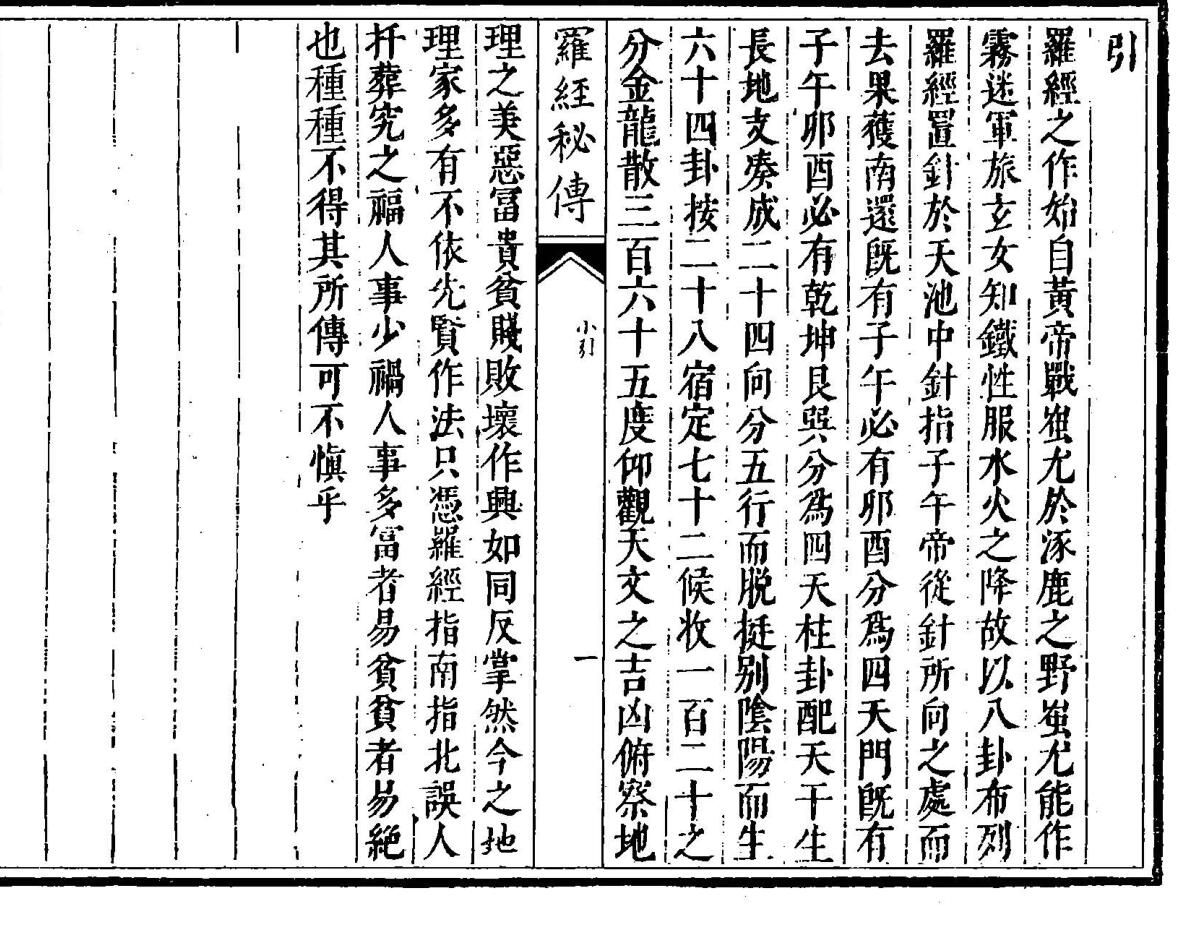 引
羅經之作始自黃帝戰蚩尤於涿鹿之野蚩尤能作
霧迷軍旅玄女知鐵性服水火之降故以八卦布列
羅經置針於天池中針指子午帝從針所向之處而
去果獲南還既有子午必有卯酉分爲四天門既有
子午卯酉必有乾坤艮巽分爲四天柱卦配天干生
長地支湊成二十四向分五行而脱挺别陰陽而生
六十四卦按二十八宿定七十二候收一百二十之
分金龍散三百六十五度仰觀天文之吉凶俯察地
羅經秘傳
小引
一
理之美惡冨貴貧賤敗壞作興如同反掌然今之地
理家多有不依先賢作法只憑羅經指南指北誤人
扦葬究之福人事少禍人事多冨者易貧貧者易絕
也種種不得其所傳可不愼乎